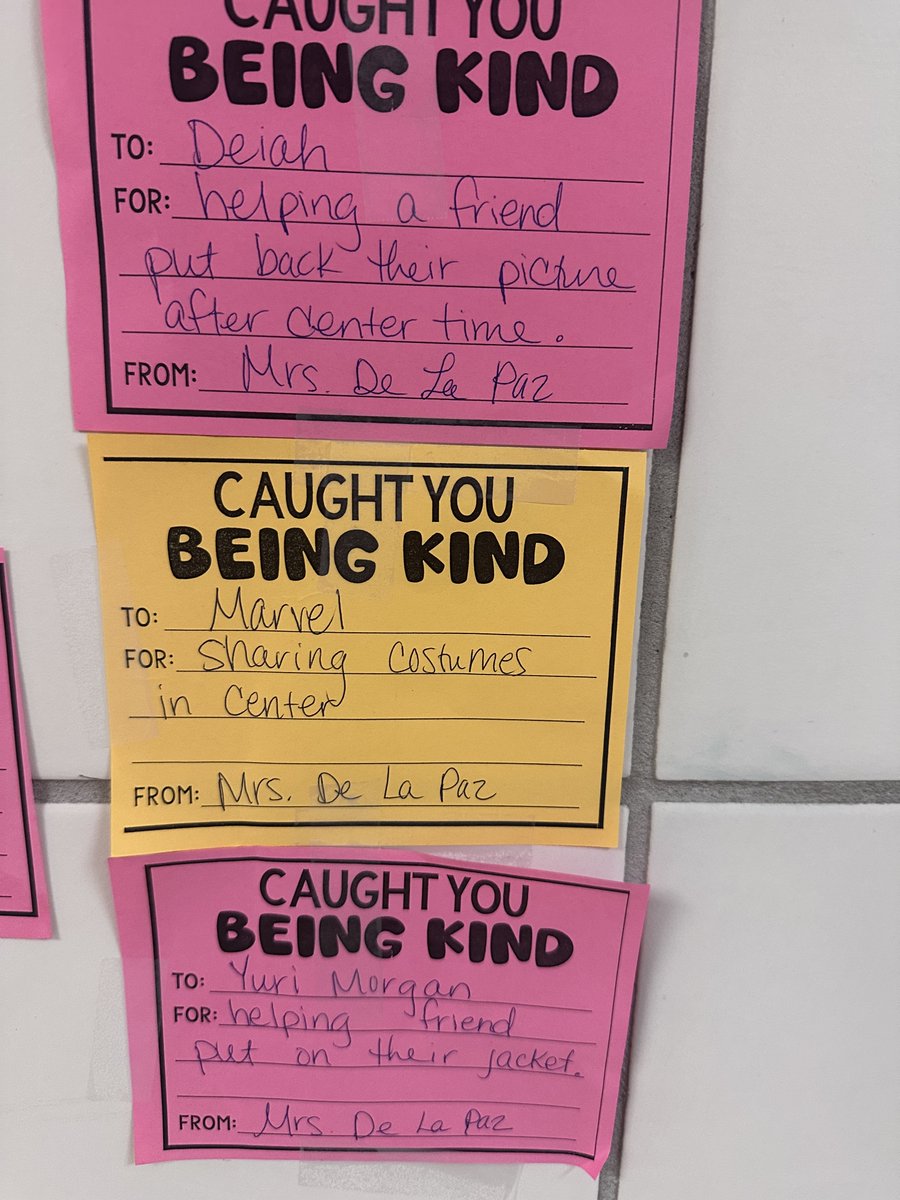 CAUGHT YOU
BEING KIND
TO: Deiah
FOR: helping a friend
put back their picture
after center time.
FROM: Mrs. De La Paz
CAUGHT YOU
BEING KIND
TO: Marvel
FOR: Sharing costumes
in Center
FROM: Mrs. De La Paz
CAUGHT YOU
BEING KIND
TO: Yuri Morgan
FOR: helping friend
put on their jacket.
FROM: Mrs. De La Paz